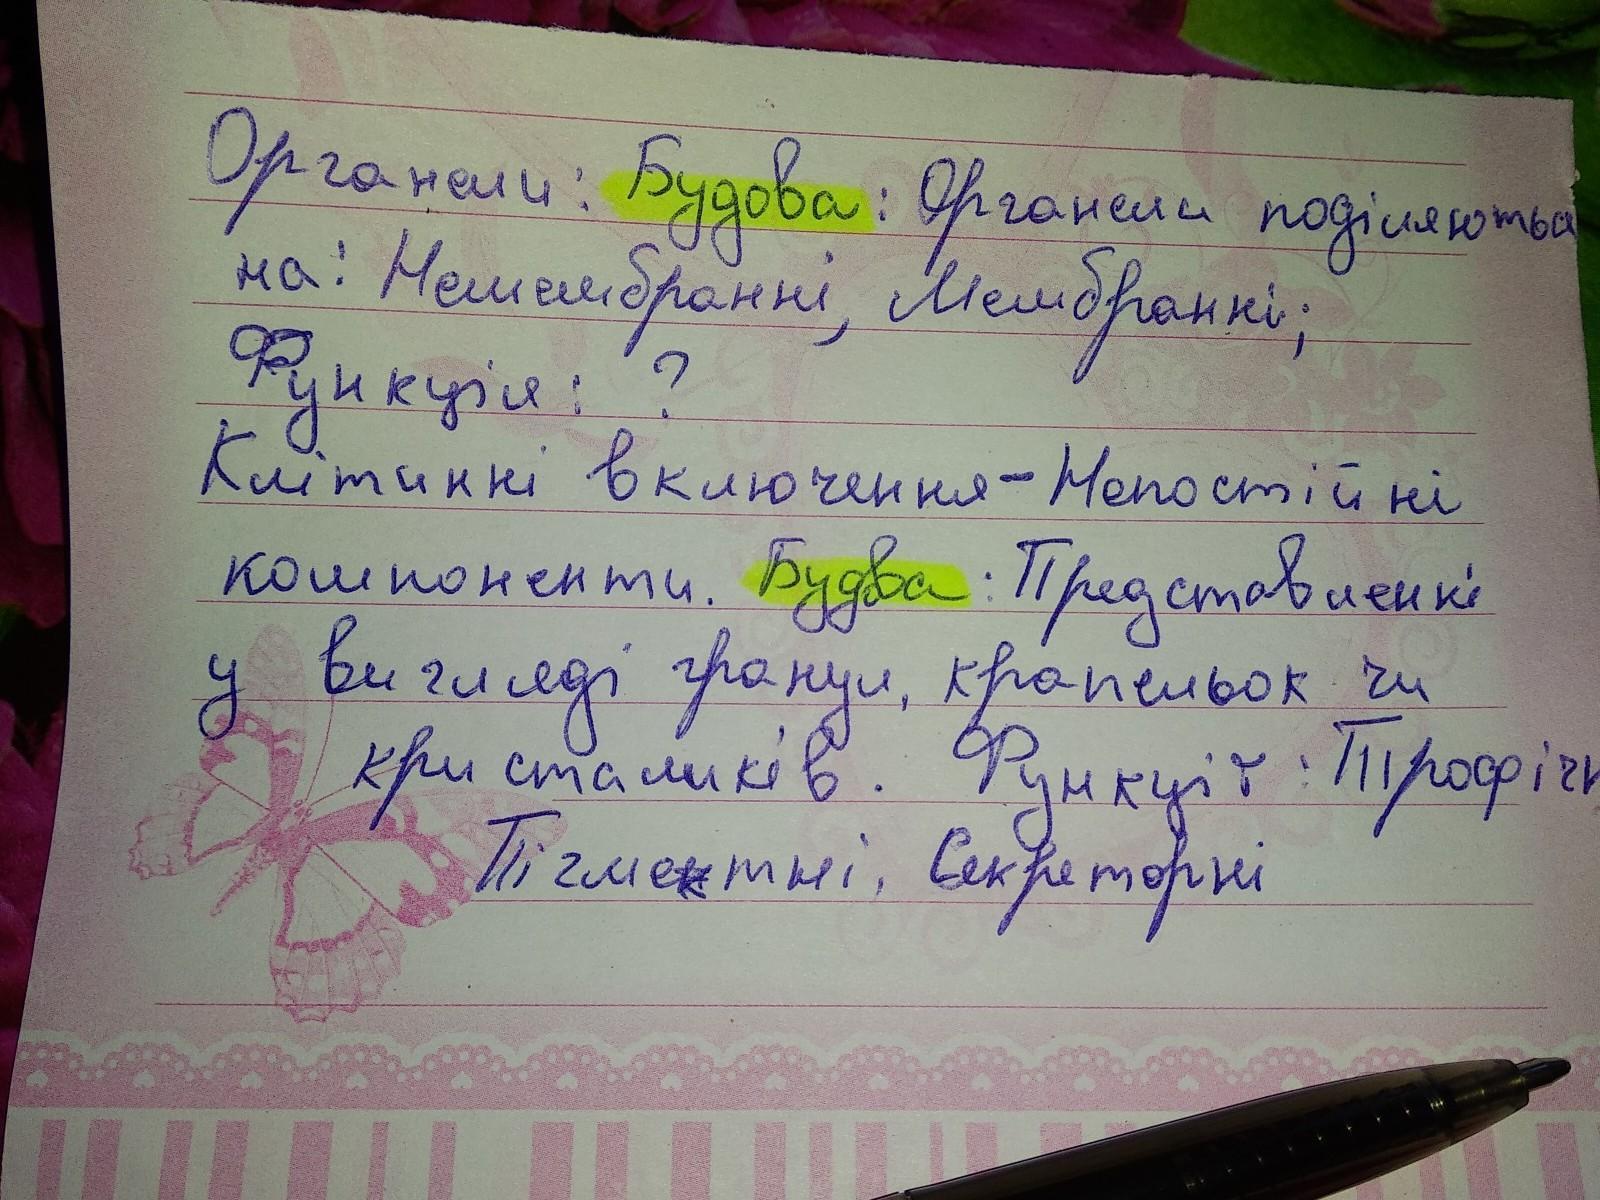 Органели: Будова: Органели поділяються
на: Немембранні, Мембранні;
Функція: ?
Клітинні включення - Непостійні
компоненти. Будва: Представленні
у вигляді гранул, крапельок чи
кристаликів. Функції: Трофічн
Пігментні, Секреторні